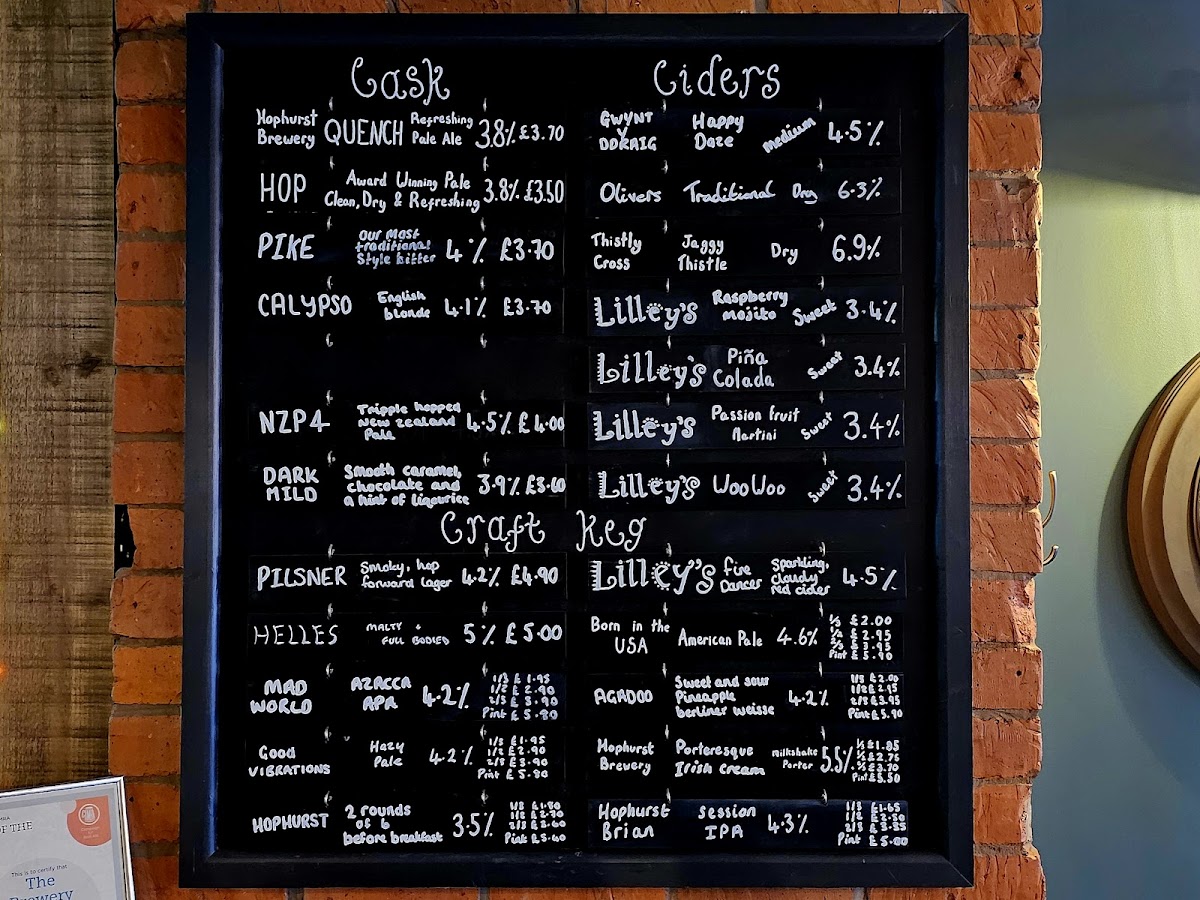 Cask
Hophurst
Brewery
QUENCH
Refreshing
Pale Ale
3.8% £3.70
HOP
Award Winning Pale
Clean, Dry & Refreshing
3.8% £3.50
PIKE
our most
traditional
style bitter
4% £3.70
CALYPSO
English
blonde
4.1% £3.70
NZP4
Tripple hopped
New zealand
Pale
4.5% £4.00
DARK
MILD
Smooth caramel,
chocolate and
a hint of liqourice
3.9% £3.60
Ciders
GWYNT
Y
DDRAIG
Happy
Daze
medium
4.5%
Olivers Traditional Dry 6.3%
Thistly
Cross
Jaggy
Thistle
Dry
6.9%
Lilley's
Raspberry
mojito
Sweet
3.4%
Lilley's
Piña
Colada
Sweet
3.4%
Lilley's
Passion fruit
Martini
Sweet
3.4%
Lilley's WooWoo Sweet 3.4%
Craft Keg
PILSNER
Smoky, hop
forward lager
4.2% £4.90
HELLES
MALTY +
FULL BODIED
5% £5.00
MAD
WORLD
AZACCA
APA
4.2%
1/3 £1.95
1/2 £2.90
2/3 £3.90
Pint £5.80
Good
VIBRATIONS
Hazy
Pale
4.2%
1/3 £1.95
1/2 £2.90
2/3 £3.90
Pint £5.80
HOPHURST
2 rounds
of 6
before breakfast
3.5%
1/3
1/2
2/3 £3.60
Pint £5.40
Lilley's
Fire
Dancer
Sparkling,
cloudy
red cider
4.5%
Born in the
USA
American Pale
4.6%
1/3 £2.00
1/2 £2.95
2/3 £3.95
Pint £5.90
AGADOO
Sweet and sour
Pineapple
berliner weisse
4.2%
1/3 £2.00
1/2 £2.95
2/3 £3.95
Pint £5.90
Hophurst
Brewery
Porteresque
Irish cream
milkshake
Porter
5.5%
1/3 £1.85
1/2 £2.75
2/3 £3.70
Pint £5.50
Hophurst
Brian
session
IPA
4.3%
1/3 £1.65
1/2 £2.50
2/3 £3.35
Pint £5.00
OF THE
This is to certify that
The
Brewery